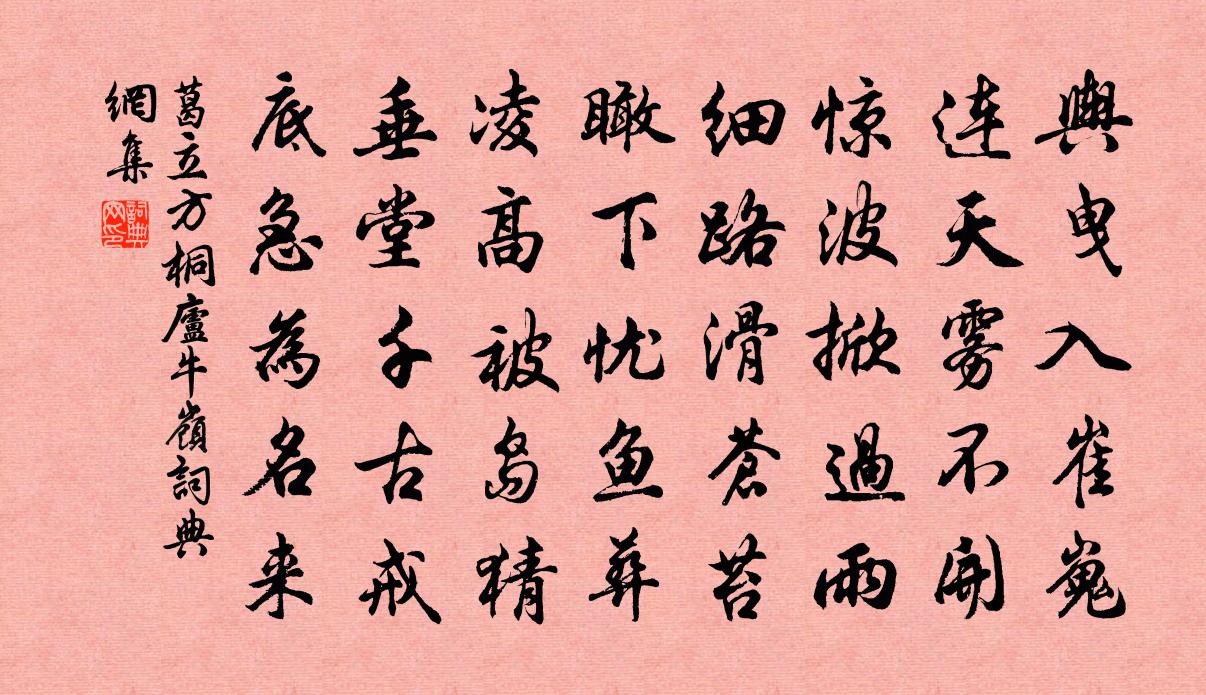 輿曳入崔嵬
连天雾不開
惊波掀過雨
细路滑蒼苔
瞰下忧鱼葬
凌高被鸟猜
垂堂千古戒
底急為名来
葛立方桐廬牛嶺詞典
網集
詞典
网印